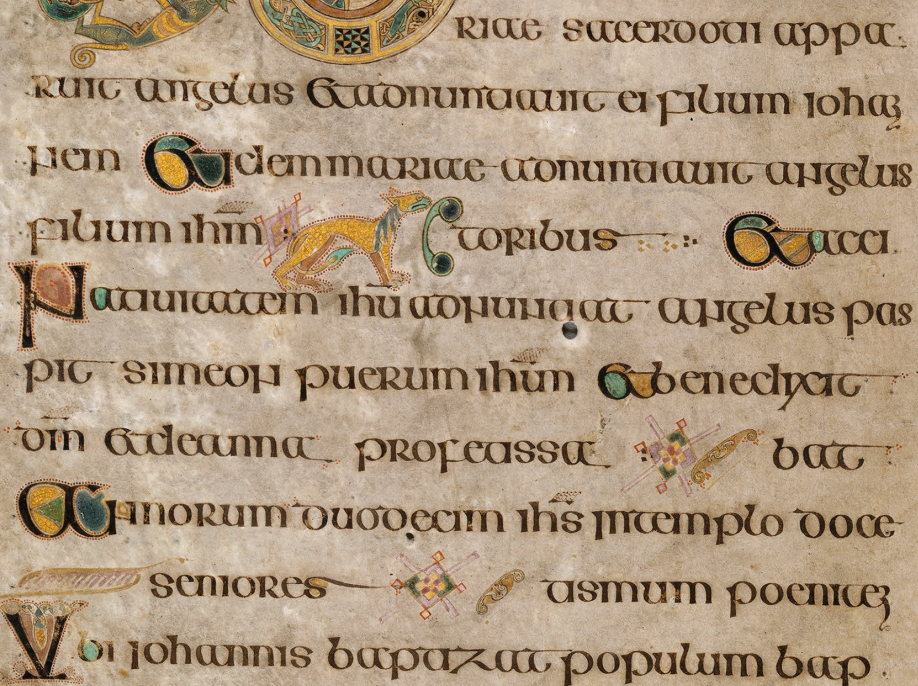 riae sacerdoti appa
ruit angelus & adnuntiauit ei filium iohan
nem & idem mariae adnuntiauit angelus
filium ihm toribus & acci
Natiuitatem ihu adnuntiat angelus pas
pit simeon puerum ihum & benedixit
dm & de anna profetissa bat
Annorum duodecim ihs in templo doce
seniores tismum poeniten
Vbi iohannis baptizat populum bap